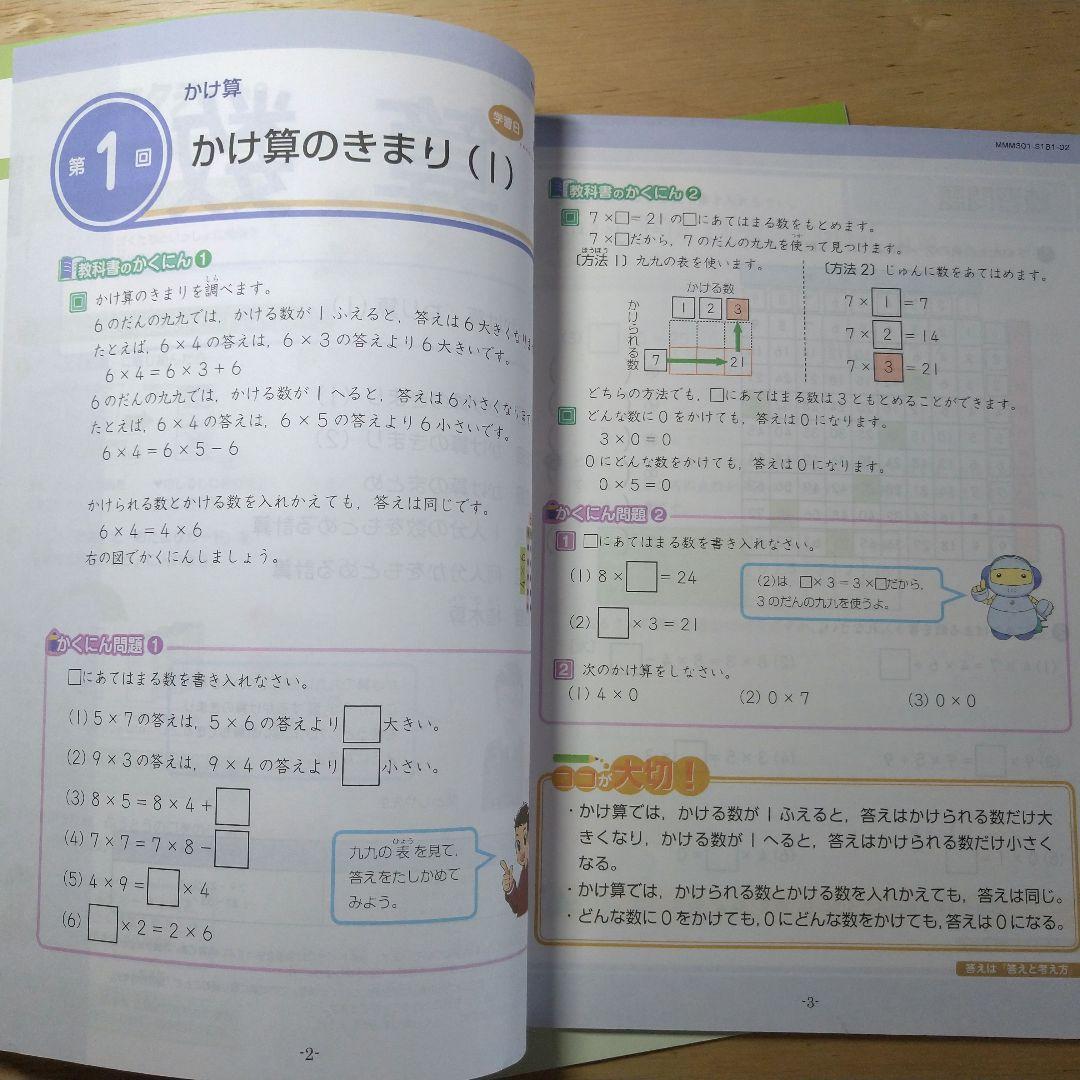 かけ算
第1回
かけ算のきまり(1)
学習日
教科書のかくにん1
かけ算のきまりを調べます。
しら
6のだんの九九では,かける数が1ふえると,答えは6大きくなります
たとえば,6×4の答えは,6×3の答えより6大きいです。
6×4=6×3+6
6のだんの九九では,かける数が1へると,答えは6小さくなります
たとえば,6×4の答えは,6×5の答えより6小さいです。
6×4=6×5-6
かけられる数とかける数を入れかえても,答えは同じです。
6×4=4×6
右の図でかくにんしましょう。
かくにん問題1
□にあてはまる数を書き入れなさい。
(1) 5×7の答えは,5×6の答えより□大きい。
(2) 9×3の答えは,9×4の答えより□小さい。
(3) 8×5=8×4+□
(4) 7×7=7×8-□
(5) 4×9=□×4
(6) □×2=2×6
ひょう
九九の表を見て,
答えをたしかめて
みよう。
-2-
MMM301-S1B1-02
教科書のかくにん2
7×□=21の□にあてはまる数をもとめます。
7×□だから,7のだんの九九を使って見つけます。
つか
ほうほう
〔方法1〕九九の表を使います。
かける数
1 2 3
かけられる数
7 21
〔方法2〕じゅんに数をあてはめます。
7×1=7
7×2=14
7×3=21
どちらの方法でも,□にあてはまる数は3ともとめることができます。
どんな数に0をかけても,答えは0になります。
3×0=0
0にどんな数をかけても,答えは0になります。
0×5=0
かくにん問題2
1 □にあてはまる数を書き入れなさい。
(1) 8×□=24
(2) □×3=21
(2)は,□×3=3×□だから,
3のだんの九九を使うよ。
2 次のかけ算をしなさい。
(1) 4×0 (2) 0×7 (3) 0×0
ココが大切!
・かけ算では,かける数が1ふえると,答えはかけられる数だけ大
きくなり,かける数が1へると,答えはかけられる数だけ小さく
なる。
・かけ算では,かけられる数とかける数を入れかえても,答えは同じ。
・どんな数に0をかけても,0にどんな数をかけても,答えは0になる。
答えは「答えと考え方
-3-